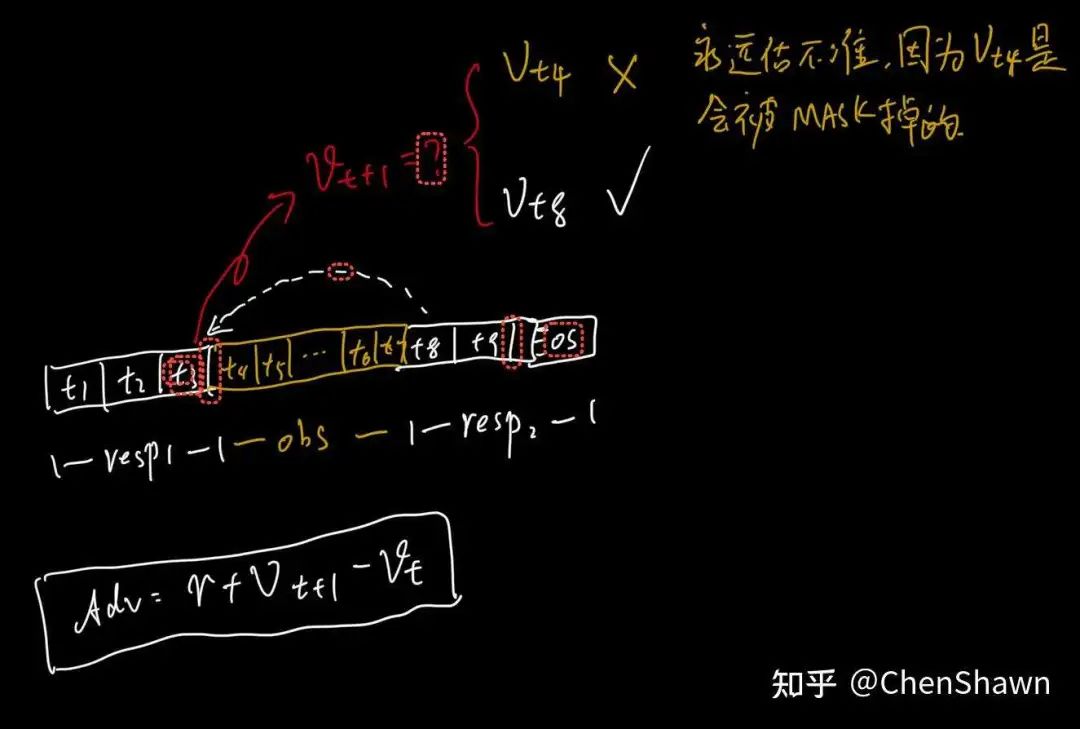 Vt4 × 永远估不准,因为Vt4是
会被MASK掉的.
Vt+1 = ?
Vt8 ✓
t1 t2 t3 t4 t5 ... t6 t7 t8 t9 eos
|— resp1 —|— obs —|— resp2 —|
Adv = r + Vt+1 - Vt
知乎 @ChenShawn